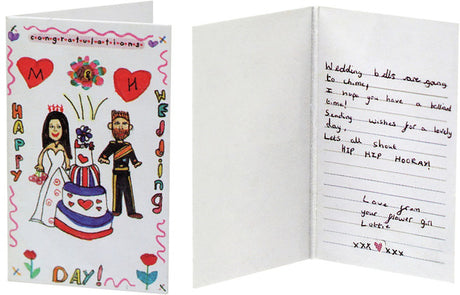 congratulations
M & H
HAPPY
WEDDING
DAY!
Wedding bells are going
to chime,
I hope you have a
time!
Sending wishes for a lovely
day,
Lets all shout
HIP HIP HOORAY!
Love from
your flower girl
Lottie
xxx ♥ xxx